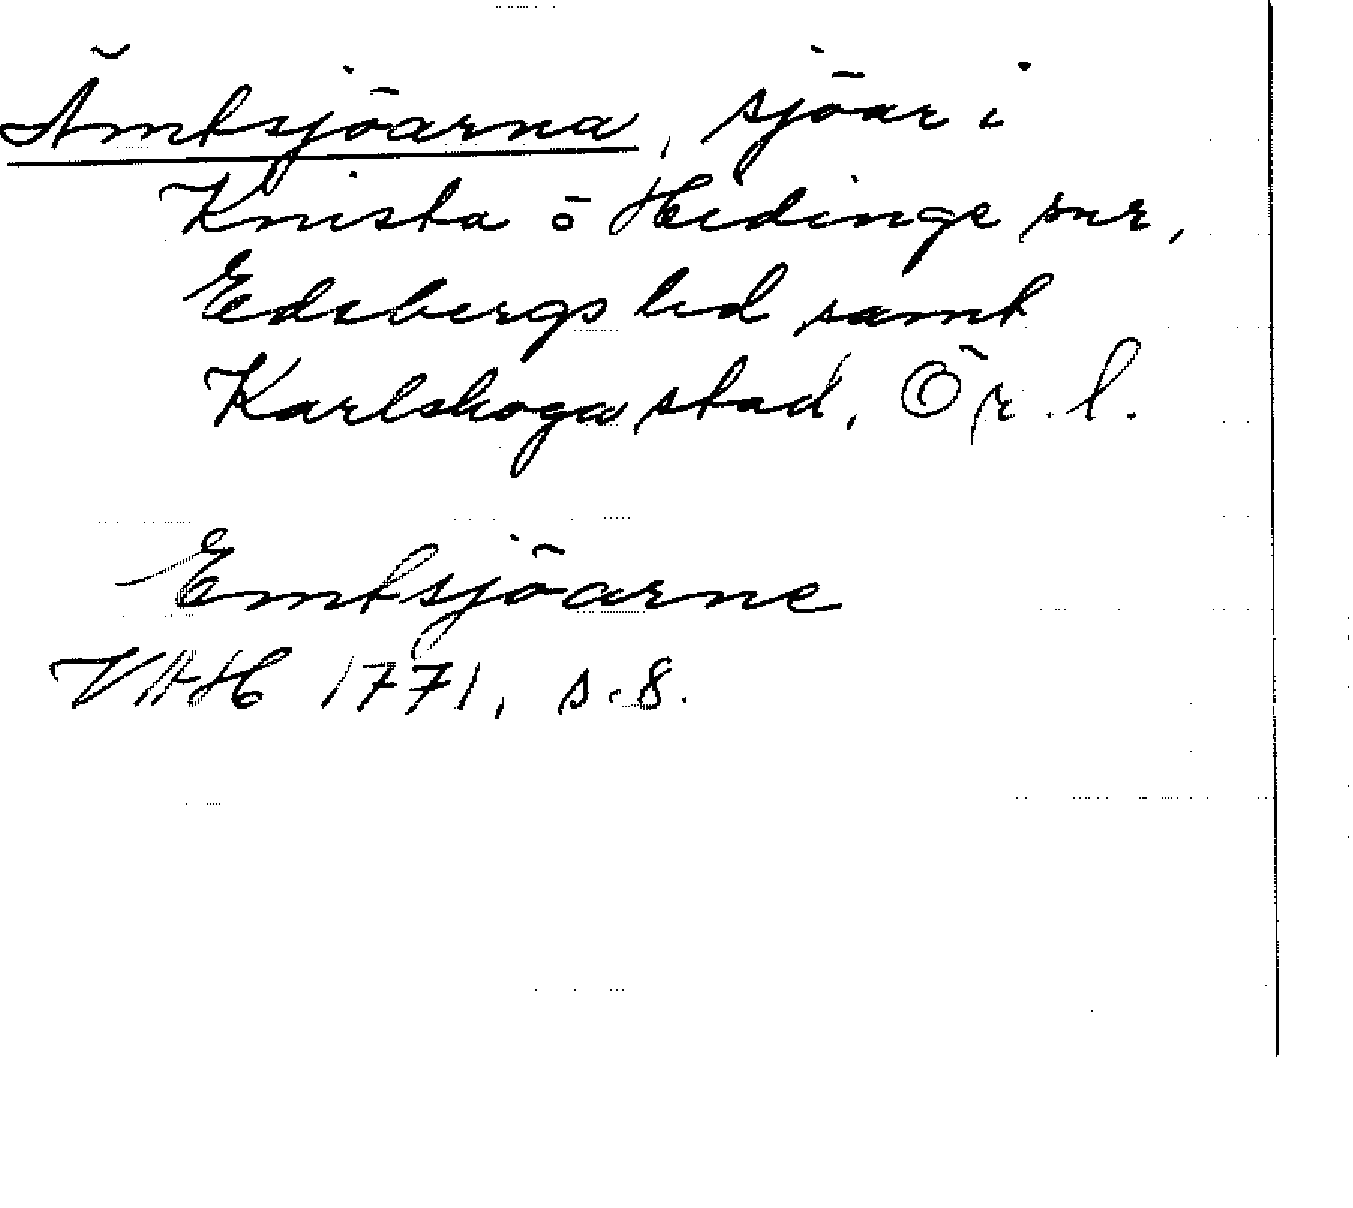 Ämtsjöarna, sjöar i
Knista o Hidinge snr,
Edsbergs hd samt
Karlskoga stad, Ör. l.
Emtsjöarne
VAH 1771, s. 8.